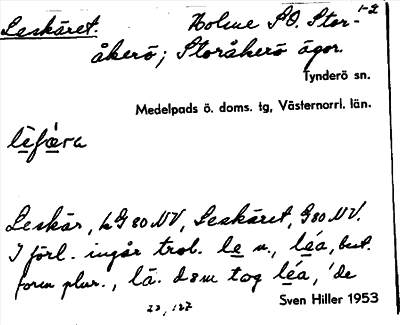 Leskäret. Holme SO. Stor- 1-2
åkerö; Storåkerö ägor.
Tynderö sn.
Medelpads ö. doms. tg, Västernorrl. län.
Leskär, LG 80 NV, Leskäret, G80 NV.
I förl. ingår trol. le n., léa, best.
form plur., lä. Dem tog léa, 'de
23, 127 Sven Hiller 1953